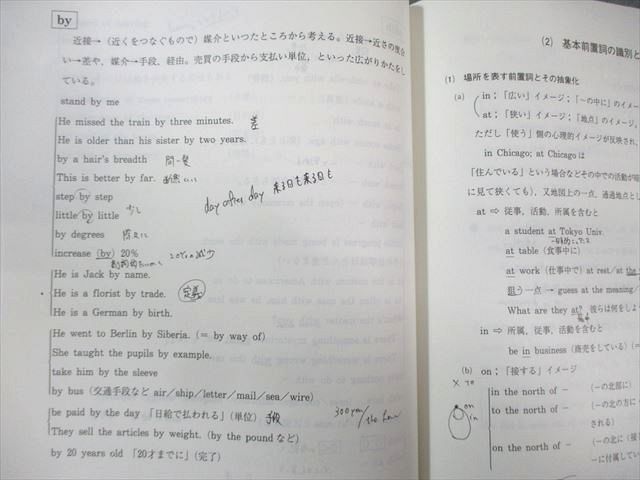 by
近接→(近くをつなぐもので)媒介といったところから考える。近接→近さの度合
い→差や、媒介→手段、経由。売買の手段から支払い単位、といった広がりかたをし
ている。
stand by me
He missed the train by three minutes. 差
He is older than his sister by two years.
by a hair's breadth 間一髪
This is better by far.
step by step day after day 来る日も来る日も
little by little 少し
by degrees
increase (by) 20%
He is Jack by name.
He is a florist by trade. 定義
He is a German by birth.
He went to Berlin by Siberia. (= by way of)
She taught the pupils by example.
take him by the sleeve
by bus (交通手段など air/ship/letter/mail/sea/wire)
be paid by the day 「日給で払われる」(単位) 手段 300yen/the hour
They sell the articles by weight. (by the pound など)
by 20 years old 「20才までに」(完了)
(2) 基本前置詞の識別と
(1) 場所を表す前置詞とその抽象化
(a) in;「広い」イメージ;「−の中に」のイメー
at;「狭い」イメージ;「地点」のイメージ。
ただし「使う」側の心理的イメージが反映され、
in Chicago; at Chicago は
「住んでいる」という場合などその中での活動が暗
に見て狭くても)、又地図上の一点、通過地点と
at ⇒ 従事、活動、所属を含むと
a student at Tokyo Univ.
at table (食事中に)
at work (仕事中で) at rest/at the
狙う一点 → guess at the meaning/
What are they at? 彼らは何をしよ
in ⇒ 所属、従事、活動を含むと
be in business (商売をしている) (=
(b) on;「接する」イメージ
× TO
on
in
in the north of − (−の北部に)
to the north of − (−の北の方に
される)
on the north of − (−の北に(接
−に付属してい